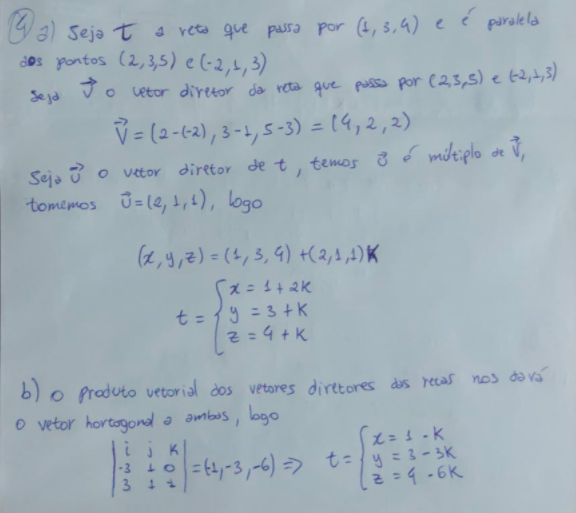 4 a) Seja t a reta que passa por (1, 3, 4) e é paralela
aos pontos (2, 3, 5) e (-2, 1, 3)
Seja V⃗ o vetor diretor da reta que passa por (2,3,5) e (-2,1,3)
V⃗ = (2-(-2), 3-1, 5-3) = (4, 2, 2)
Seja U⃗ o vetor diretor de t, temos U⃗ é múltiplo de V⃗,
tomemos U⃗ = (2, 1, 1), logo
(x, y, z) = (1, 3, 4) + (2, 1, 1)K
t = { x = 1 + 2K
y = 3 + K
z = 4 + K
b) O produto vetorial dos vetores diretores das retas nos dará
o vetor hortogonal a ambos, logo
| i j K |
| -3 1 0 | = (-1, -3, -6) => t = { x = 1 - K
| 3 1 -1 | y = 3 - 3K
z = 4 - 6K